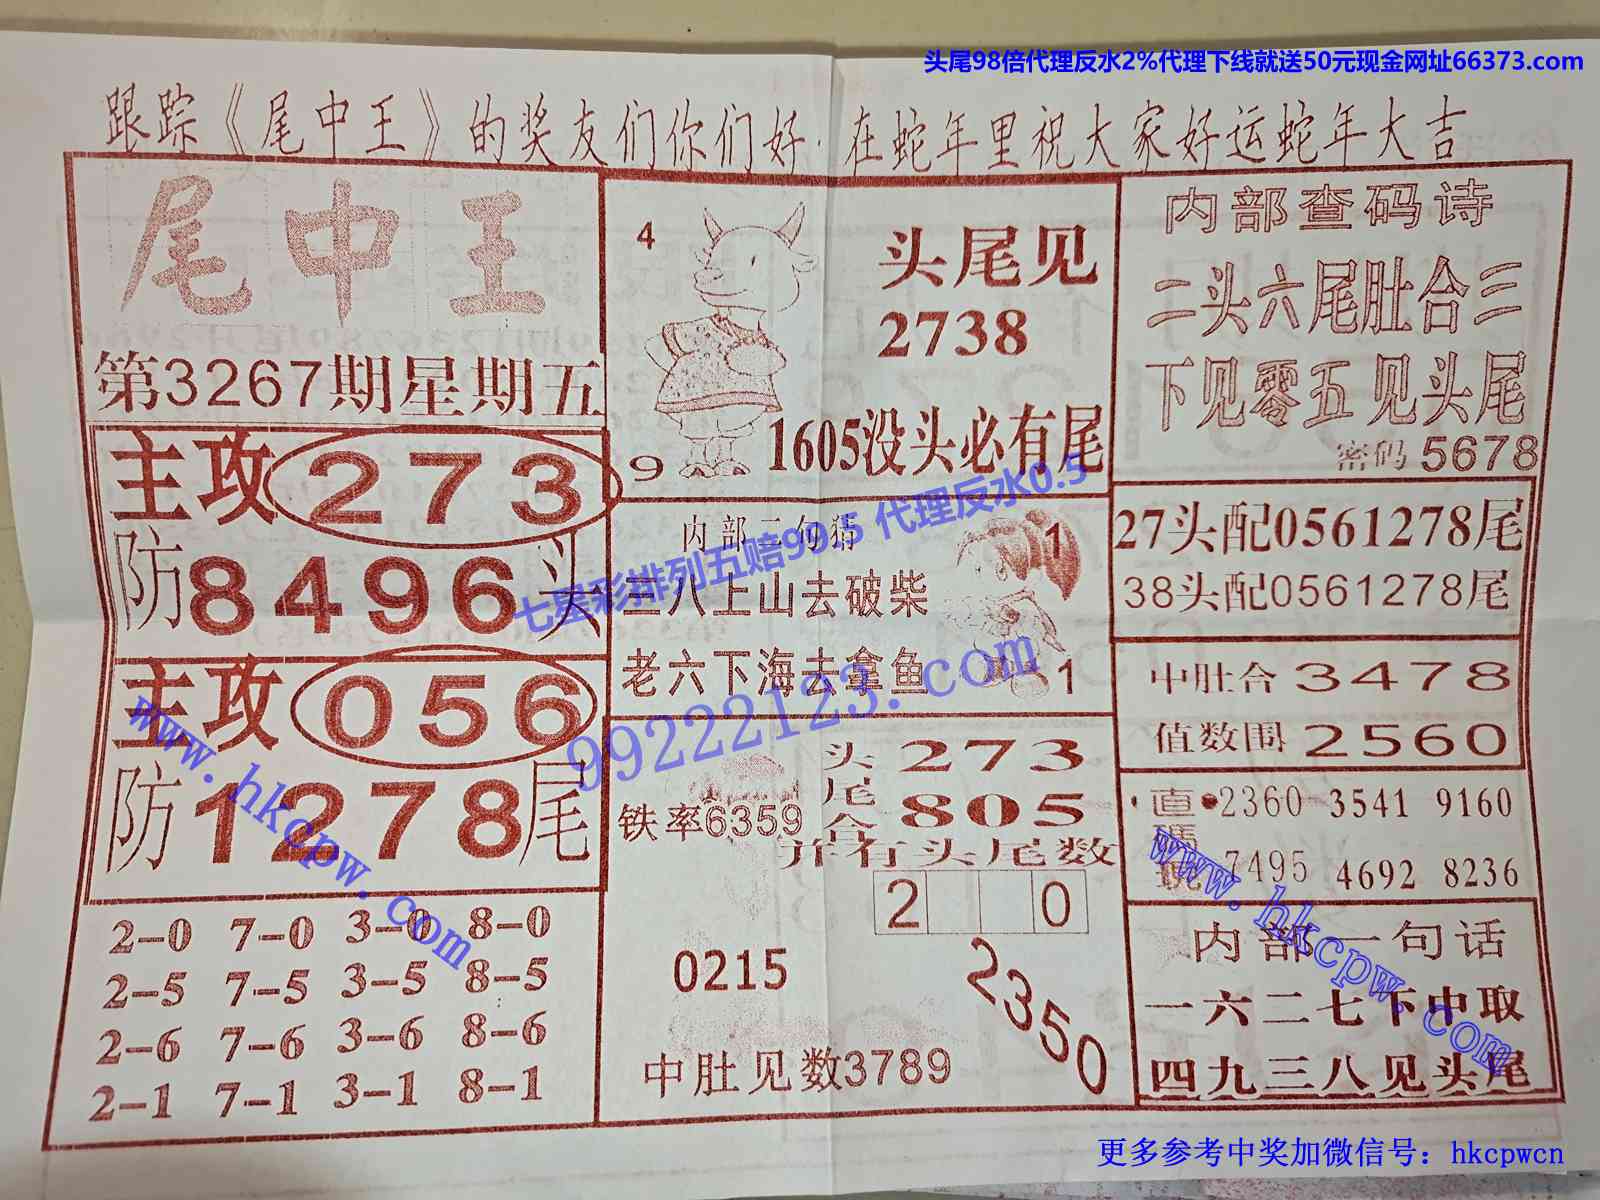 头尾98倍代理反水2%代理下线就送50元现金网址66373.com
跟踪《尾中王》的奖友们你们好.在蛇年里祝大家好运蛇年大吉
尾中王
第3267期星期五
主攻273
防8496头
主攻056
防1278尾
2-0 7-0 3-0 8-0
2-5 7-5 3-5 8-5
2-6 7-6 3-6 8-6
2-1 7-1 3-1 8-1
4
9
头尾见
2738
1605没头必有尾
内部二句猜
三八上山去破柴
老六下海去拿鱼
1
1
铁率6359
头尾合
273
805
并有头尾数
2 0
0215
2350
中肚见数3789
内部查码诗
二头六尾肚合三
下见零五见头尾
密码5678
27头配0561278尾
38头配0561278尾
中肚合3478
值数围2560
直碼
2360 3541 9160
7495 4692 8236
内部一句话
一六二七下中取
四九三八见头尾
七星彩排列五赔99.5 代理反水0.5
99222123.com
www.hkcpw.com
www.hkcpw.com
更多参考中奖加微信号：hkcpwcn